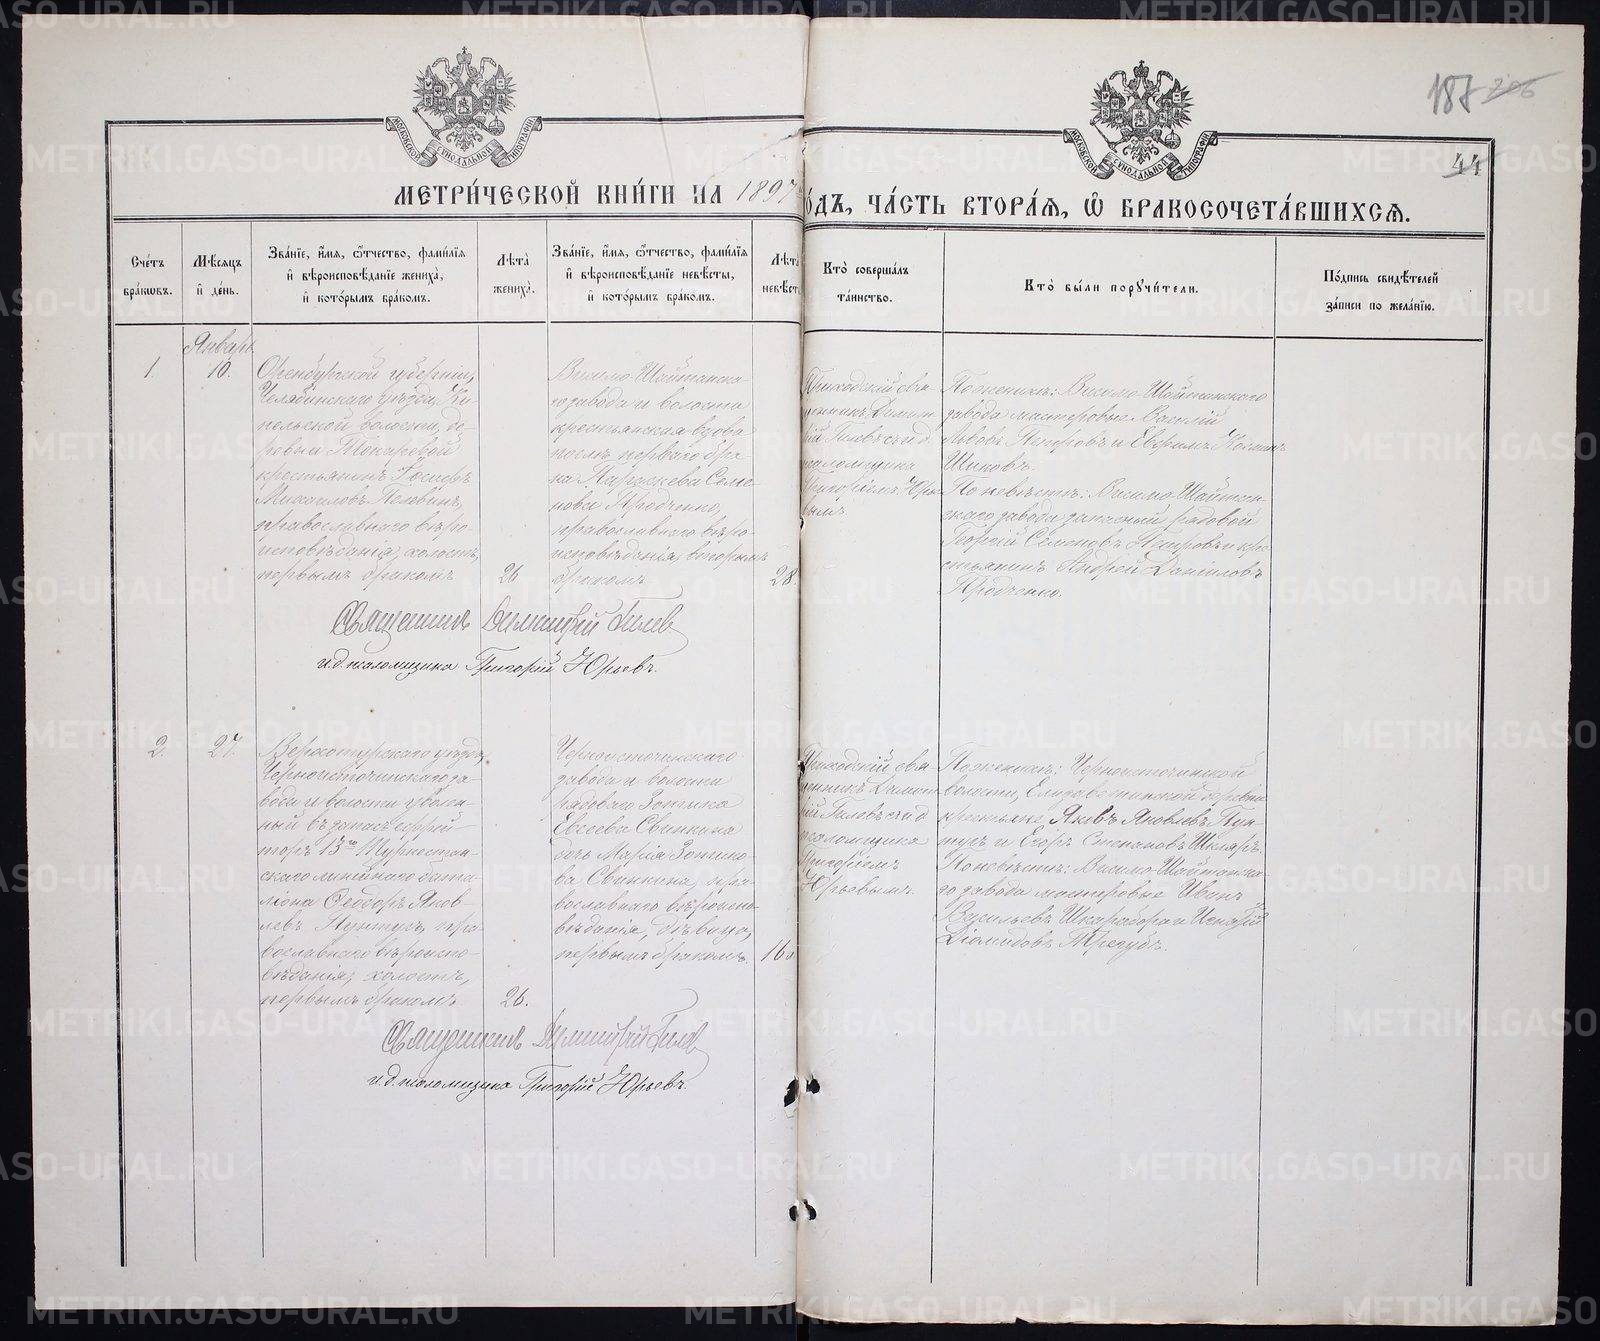 187 206
44
МОСКОВСКОЙ СѴНОДАЛЬНОЙ ТИПОГРАФІИ
МОСКОВСКОЙ СѴНОДАЛЬНОЙ ТИПОГРАФІИ
МЕТРИ́ЧЕСКОЙ КНИ́ГИ НА 1897 го́дъ, ЧА́СТЬ ВТОРА́Я, Ѡ҆ БРАКОСОЧЕТА́ВШИХСЯ.
Сче́тъ бра́кѡвъ.
Мѣ́сяцъ и҆ де́нь.
Зва́нїе, и҆́мя, ѻ҆́тчество, фами́лїя и҆ вѣроисповѣ́данїе жениха̀, и҆ кото́рымъ бра́комъ.
Лѣ́та жениха̀.
Зва́нїе, и҆́мя, ѻ҆́тчество, фами́лїя и҆ вѣроисповѣ́данїе невѣ́сты, и҆ кото́рымъ бра́комъ.
Лѣ́та невѣ́сты
Кто̀ соверша́лъ та́инство.
Кто̀ бы́ли поручи́тели.
По́дпись свидѣ́телей за́писи по жела́нїю.
Январь
1.
10.
Оренбургской губерніи,
Челябинскаго уѣзда, Ки-
пельской волости, де-
ревни Токаревой
крестьянинъ Іосифъ
Михаиловъ Пеловинъ,
православнаго вѣро-
исповѣданія, холостъ,
первымъ бракомъ
26
Висимо-Шайтанска-
го завода и волости
крестьянская вдова
послѣ перваго бра-
ка Параскева Семе-
нова Продченко,
православнаго вѣро-
исповѣданія, вторымъ
бракомъ
28.
Приходскій свя-
щенникъ Димит-
рій Гилевъ съ и. д.
псаломщика
Григоріемъ Юрье-
вымъ
По женихѣ: Висимо-Шайтанскаго
завода мастеровые Василій
Львовъ Петровъ и Евфимъ Космин
Шиковъ.
По невѣстѣ: Висимо-Шайтан-
скаго завода запасный рядовой
Георгій Семеновъ Петровъ и кре-
стьянинъ Андрей Даніиловъ
Продченко.
Священникъ Димитрій Гилев
и. д. псаломщика Григорій Юрьевъ.
2.
27.
Верхотурскаго уѣзда,
Черноисточинскаго за-
вода и волости уволен-
ный въ запасъ ефрей-
торъ 13го Туркестан-
скаго линейнаго бата-
ліона Ѳеодоръ Яков-
левъ Пунтусъ, пра-
вославнаго вѣроиспо-
вѣданія, холостъ,
первымъ бракомъ
26.
Черноисточинскаго
завода и волости
рядоваго Зотика
Евсеева Свинкина
дочь Марія Зотико-
ва Свинкина, пра-
вославнаго вѣроиспо-
вѣданія, дѣвица,
первымъ бракомъ.
16
Приходскій свя-
щенникъ Димит-
рій Гилевъ съ и. д.
псаломщика
Григоріемъ
Юрьевымъ.
По женихѣ: Черноисточинской
волости, Елизаветинской деревни
крестьяне Яковъ Яковлевъ Пун-
тусъ и Егоръ Степановъ Шкляръ.
По невѣстѣ: Висимо-Шайтанска-
го завода мастеровые Иванъ
Васильевъ Шкарабора и Игнатій
Діомидовъ Трегубъ.
Священникъ Димитрій Гилев
и. д. псаломщика Григорій Юрьевъ.
METRIKI.GASO-URAL.RU